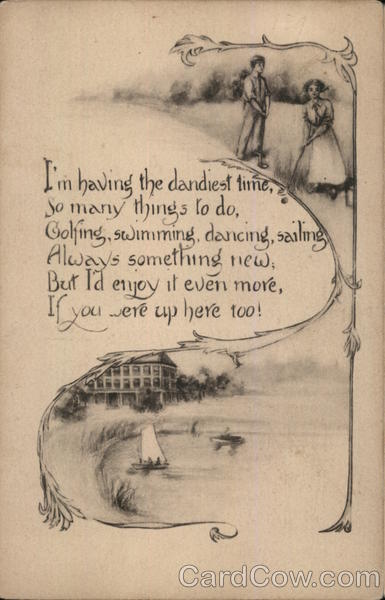 I'm having the dandiest time,
So many things to do,
Golfing, swimming, dancing, sailing
Always something new;
But I'd enjoy it even more,
If you were up here too!
CardCow.com